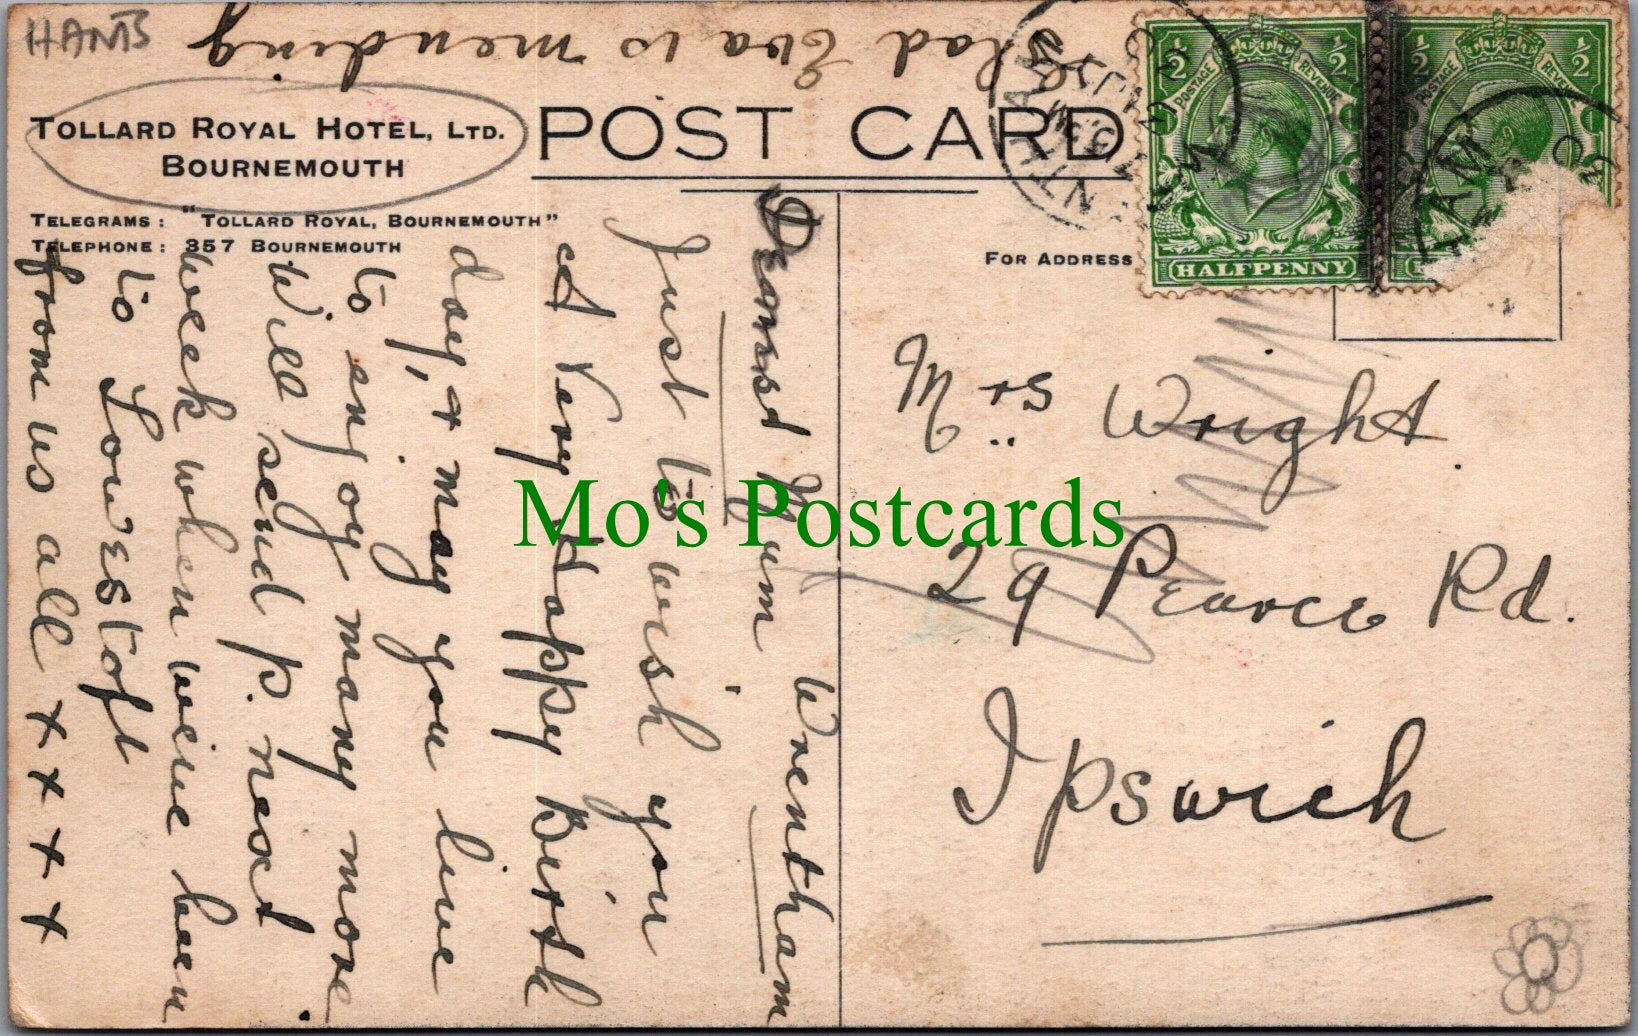 HANTS
Glad Eva is mending
TOLLARD ROYAL HOTEL, LTD.
BOURNEMOUTH
TELEGRAMS: "TOLLARD ROYAL, BOURNEMOUTH"
TELEPHONE: 357 BOURNEMOUTH
POST CARD
FOR ADDRESS
POSTAGE REVENUE
½ ½
HALFPENNY
POSTAGE REVENUE
½ ½
WRENTHAM
Wrentham
Dearest Mum
Just to wish you
a Very Happy Birth
day, + may you live
to enjoy many more
Will send p. next
week when weive been
to Lowestoft
from us all x x x x
Mrs Wright.
29 Pearce Rd.
Ipswich
Mo's Postcards